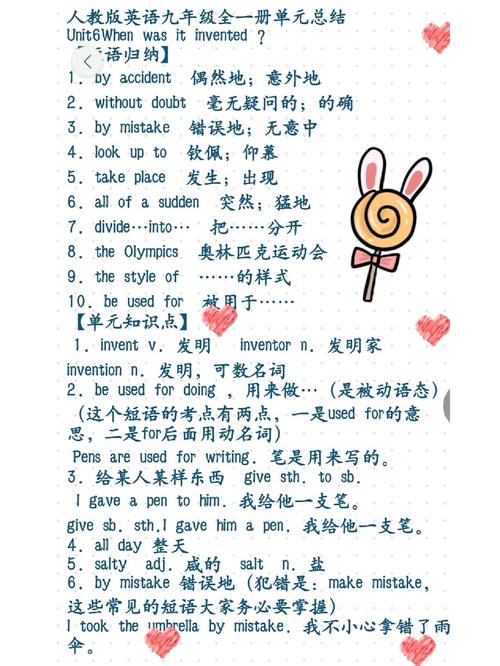 人教版英语九年级全一册单元总结
Unit6When was it invented ?
语归纳】
1. by accident 偶然地; 意外地
2. without doubt 毫无疑问的; 的确
3. by mistake 错误地; 无意中
4. look up to 钦佩; 仰慕
5. take place 发生; 出现
6. all of a sudden 突然; 猛地
7. divide…into… 把……分开
8. the Olympics 奥林匹克运动会
9. the style of ……的样式
10. be used for 被用于……
【单元知识点】
1. invent v. 发明 inventor n. 发明家
invention n. 发明, 可数名词
2. be used for doing , 用来做…（是被动语态）
（这个短语的考点有两点, 一是used for的意
思, 二是for后面用动名词）
Pens are used for writing. 笔是用来写的。
3. 给某人某样东西 give sth. to sb.
I gave a pen to him. 我给他一支笔。
give sb. sth.I gave him a pen. 我给他一支笔。
4. all day 整天
5. salty adj. 咸的 salt n. 盐
6. by mistake 错误地（犯错是: make mistake,
这些常见的短语大家务必要掌握）
I took the umbrella by mistake. 我不小心拿错了雨
伞。